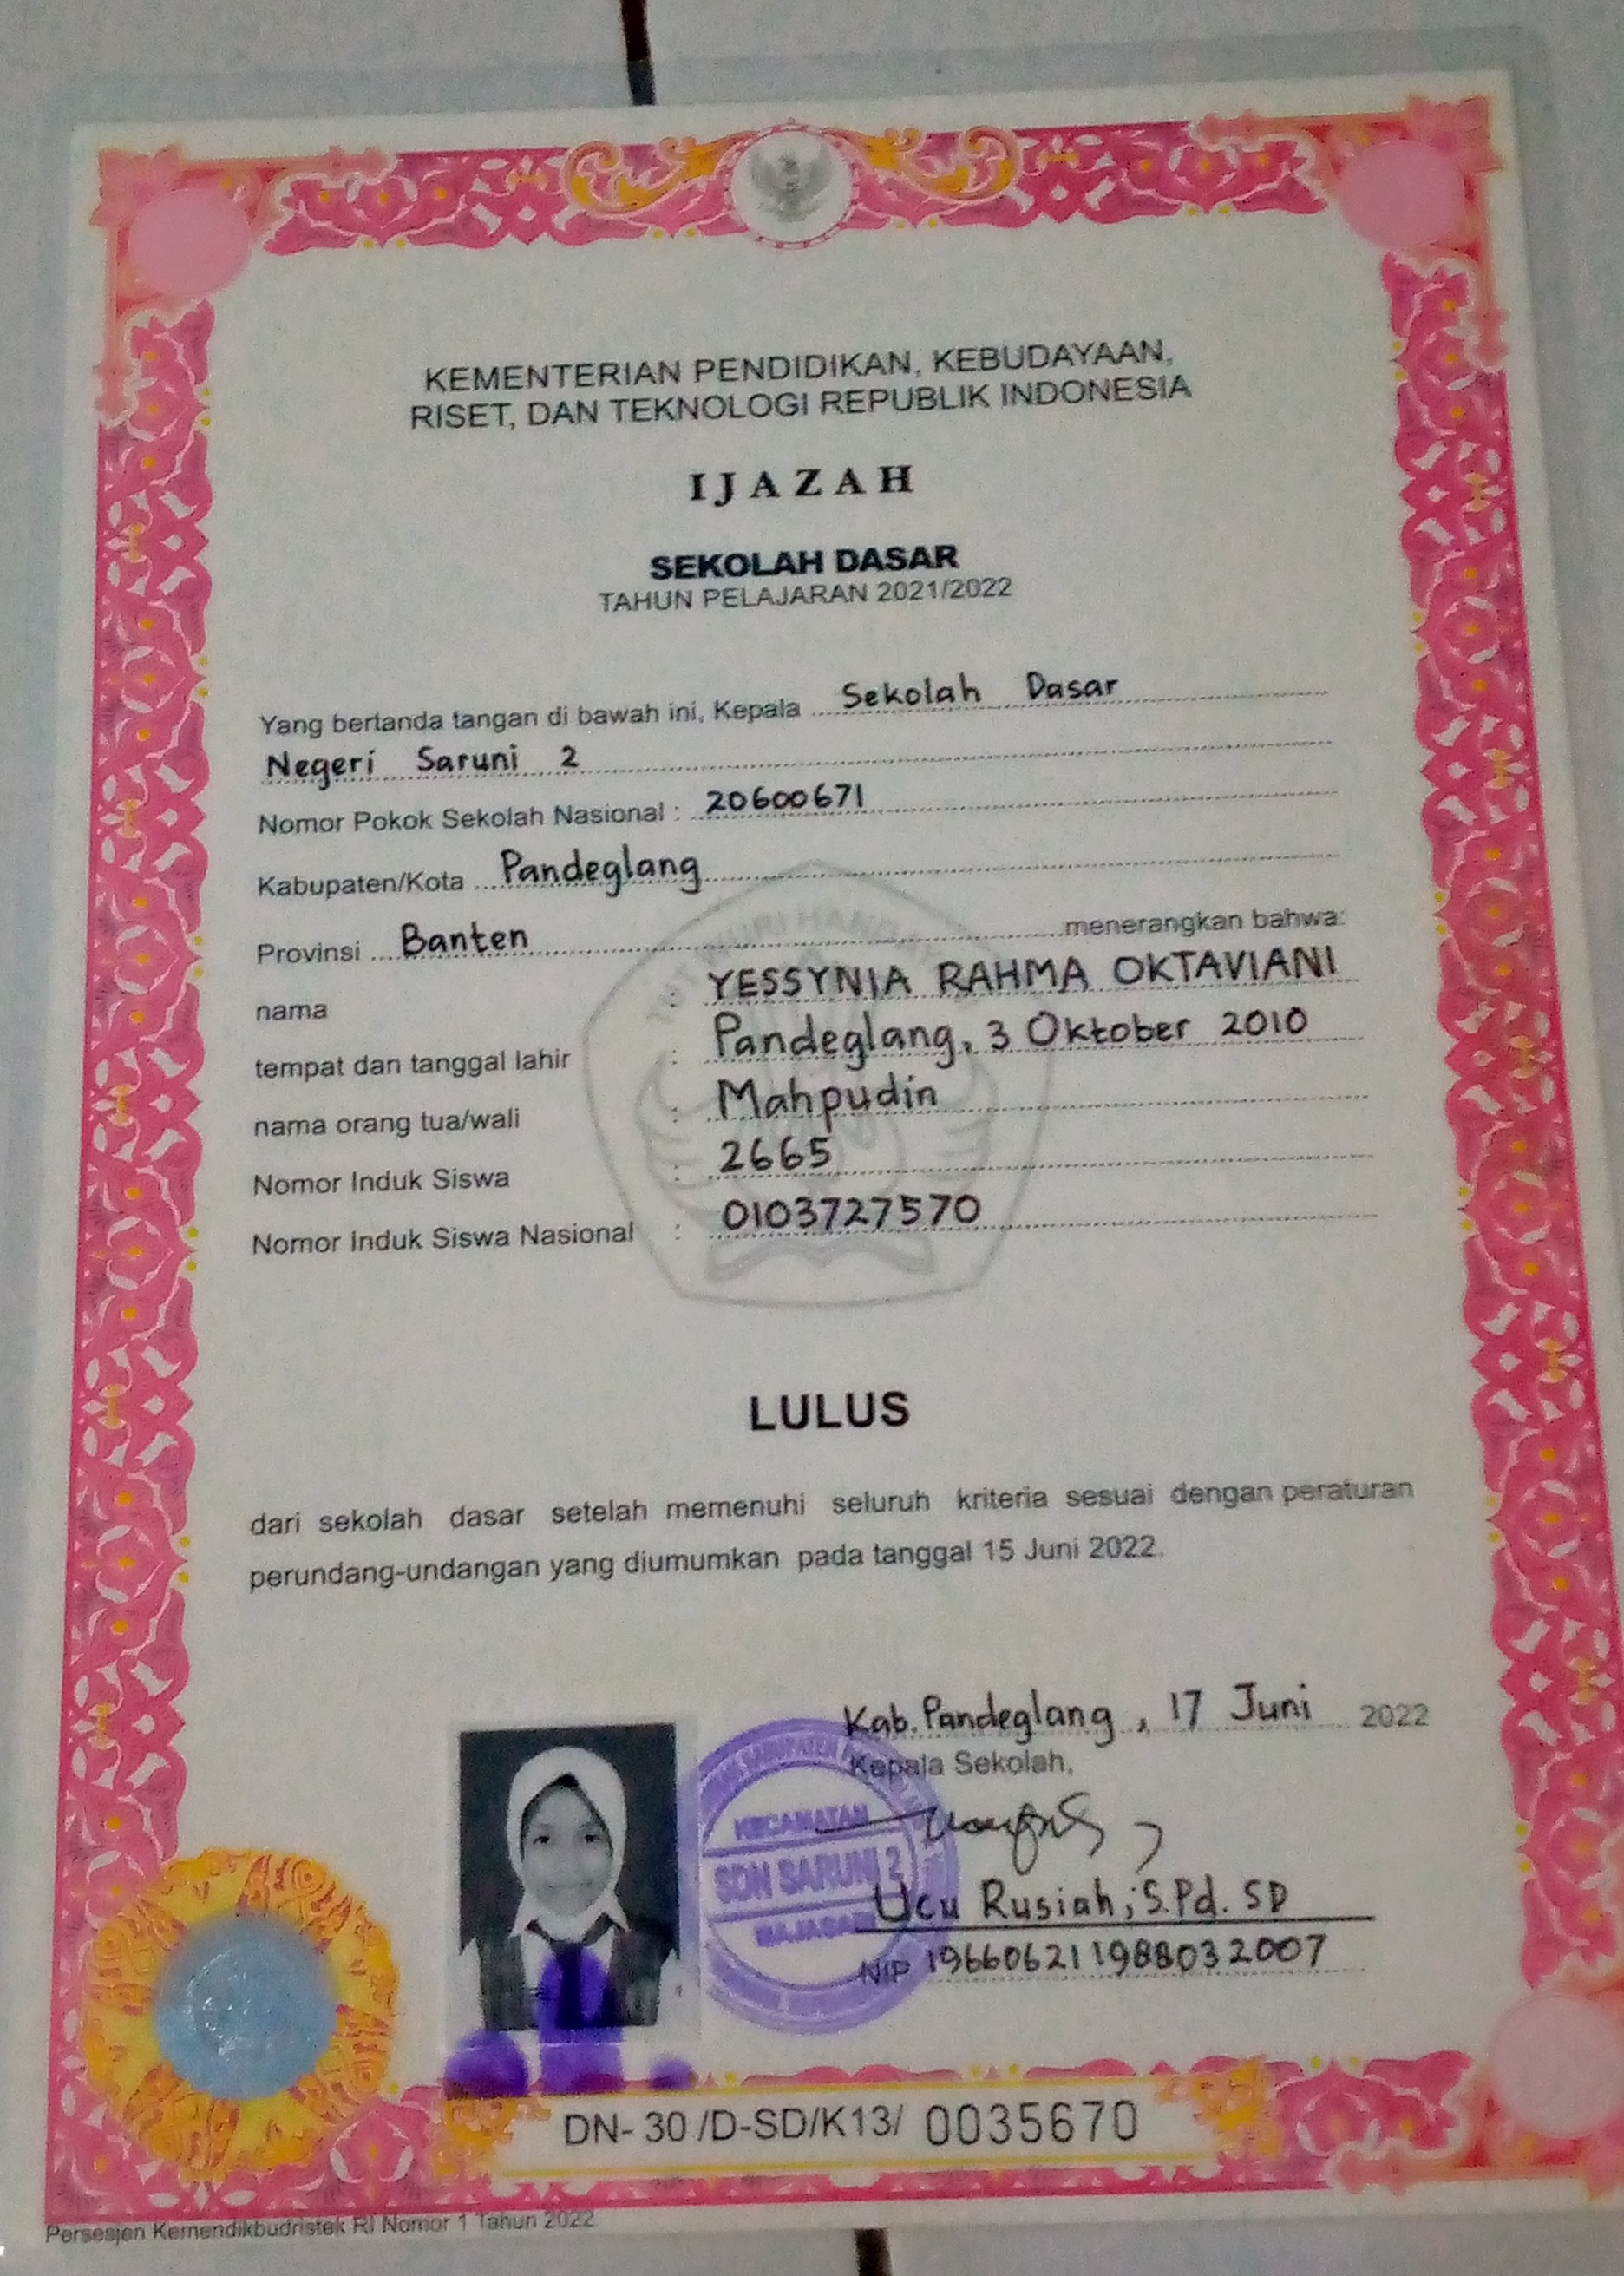 KEMENTERIAN PENDIDIKAN, KEBUDAYAAN,
RISET, DAN TEKNOLOGI REPUBLIK INDONESIA
IJAZAH
SEKOLAH DASAR
TAHUN PELAJARAN 2021/2022
Yang bertanda tangan di bawah ini, Kepala Sekolah Dasar
Negeri Saruni 2
Nomor Pokok Sekolah Nasional : 20600671
Kabupaten/Kota Pandeglang
Provinsi Banten menerangkan bahwa:
nama : YESSYNIA RAHMA OKTAVIANI
tempat dan tanggal lahir : Pandeglang, 3 Oktober 2010
nama orang tua/wali : Mahpudin
Nomor Induk Siswa : 2665
Nomor Induk Siswa Nasional : 0103727570
LULUS
dari sekolah dasar setelah memenuhi seluruh kriteria sesuai dengan peraturan
perundang-undangan yang diumumkan pada tanggal 15 Juni 2022.
Kab. Pandeglang, 17 Juni 2022
Kepala Sekolah,
KECAMATAN
SDN SARUNI 2
MAJASARI
Ucu Rusiah, S.Pd. SD
NIP 196606211988032007
DN- 30 /D-SD/K13/ 0035670
Persesjen Kemendikbudristek RI Nomor 1 Tahun 2022